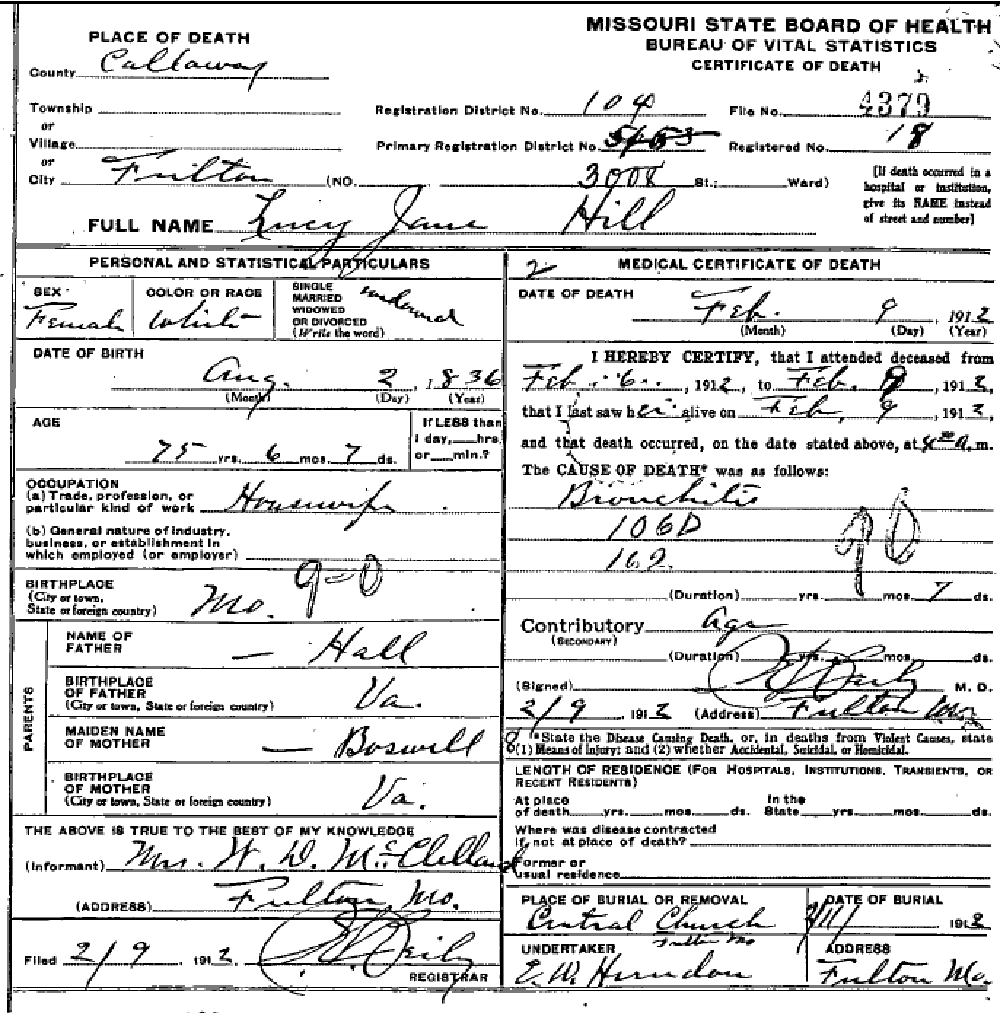 MISSOURI STATE BOARD OF HEALTH
BUREAU OF VITAL STATISTICS
CERTIFICATE OF DEATH
PLACE OF DEATH
County Callaway
Township
or
Village
or
City Fulton (NO. St.; Ward)
Registration District No. 104 File No. 4379
Primary Registration District No. 3008 Registered No. 18
[If death occurred in a
hospital or institution,
give its NAME instead
of street and number]
FULL NAME Lucy Jane Hill
PERSONAL AND STATISTICAL PARTICULARS
SEX
Female
COLOR OR RACE
White
SINGLE
MARRIED
WIDOWED
OR DIVORCED
(Write the word)
widowed
DATE OF BIRTH
Aug. 2, 1836
(Month) (Day) (Year)
AGE
75 yrs. 6 mos. 7 ds.
If LESS than
1 day, hrs.
or min.?
OCCUPATION
(a) Trade, profession, or
particular kind of work Housewife
(b) General nature of industry,
business, or establishment in
which employed (or employer)
BIRTHPLACE
(City or town,
State or foreign country) Mo.
PARENTS
NAME OF
FATHER — Hall
BIRTHPLACE
OF FATHER
(City or town, State or foreign country) Va.
MAIDEN NAME
OF MOTHER — Boswell
BIRTHPLACE
OF MOTHER
(City or town, State or foreign country) Va.
THE ABOVE IS TRUE TO THE BEST OF MY KNOWLEDGE
(Informant) Mrs. W. D. McClelland
(ADDRESS) Fulton Mo.
Filed 2/9 1912
REGISTRAR
2 MEDICAL CERTIFICATE OF DEATH
DATE OF DEATH
Feb. 9, 1912
(Month) (Day) (Year)
I HEREBY CERTIFY, that I attended deceased from
Feb. 6, 1912, to Feb. 9, 1912,
that I last saw her alive on Feb, 9, 1912,
and that death occurred, on the date stated above, at m.
The CAUSE OF DEATH* was as follows:
Bronchitis
106D
162
90
(Duration) yrs. mos. 7 ds.
Contributory Age
(SECONDARY)
(Duration) yrs. mos. ds.
(Signed) M. D.
2/9 1912 (Address) Fulton Mo.
*State the Disease Causing Death, or, in deaths from Violent Causes, state
(1) Means of Injury; and (2) whether Accidental, Suicidal, or Homicidal.
LENGTH OF RESIDENCE (FOR HOSPITALS, INSTITUTIONS, TRANSIENTS, OR
RECENT RESIDENTS)
At place
of death yrs. mos. ds.
In the
State yrs. mos. ds.
Where was disease contracted
if not at place of death?
Former or
usual residence
PLACE OF BURIAL OR REMOVAL
Central Church
Fulton Mo
DATE OF BURIAL
2/11/ 1912
UNDERTAKER
E. W. Herndon
ADDRESS
Fulton Mo.